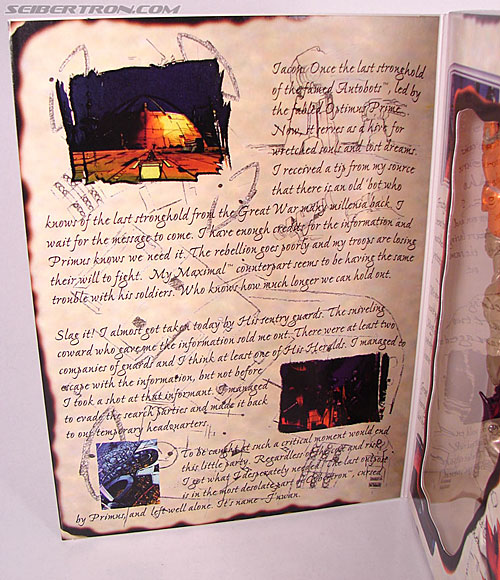 SEIBERTRON.COM
Iacon. Once the last stronghold
of the famed Autobots™, led by
the fabled Optimus Prime.
Now, it serves as a hive for
wretched souls and lost dreams.
I received a tip from my source
that there is an old 'bot who
knows of the last stronghold from the Great War many millenia back. I
wait for the message to come. I have enough credits for the information and
Primus knows we need it. The rebellion goes poorly and my troops are losing
their will to fight. My Maximal™ counterpart seems to be having the same
trouble with his soldiers. Who knows how much longer we can hold out.
Slag it! I almost got taken today by His sentry guards. The sniveling
coward who gave me the information sold me out. There were at least two
companies of guards and I think at least one of His Heralds. I managed to
escape with the information, but not before
I took a shot at that informant. I managed
to evade the search parties and made it back
to our temporary headquarters.
To be caught at such a critical moment would end
this little party. Regardless of the and risk,
I got what I desperately needed. The last outpost
is in the most desolate part of Cybertron™, cursed
by Primus, and left well alone. It's name -